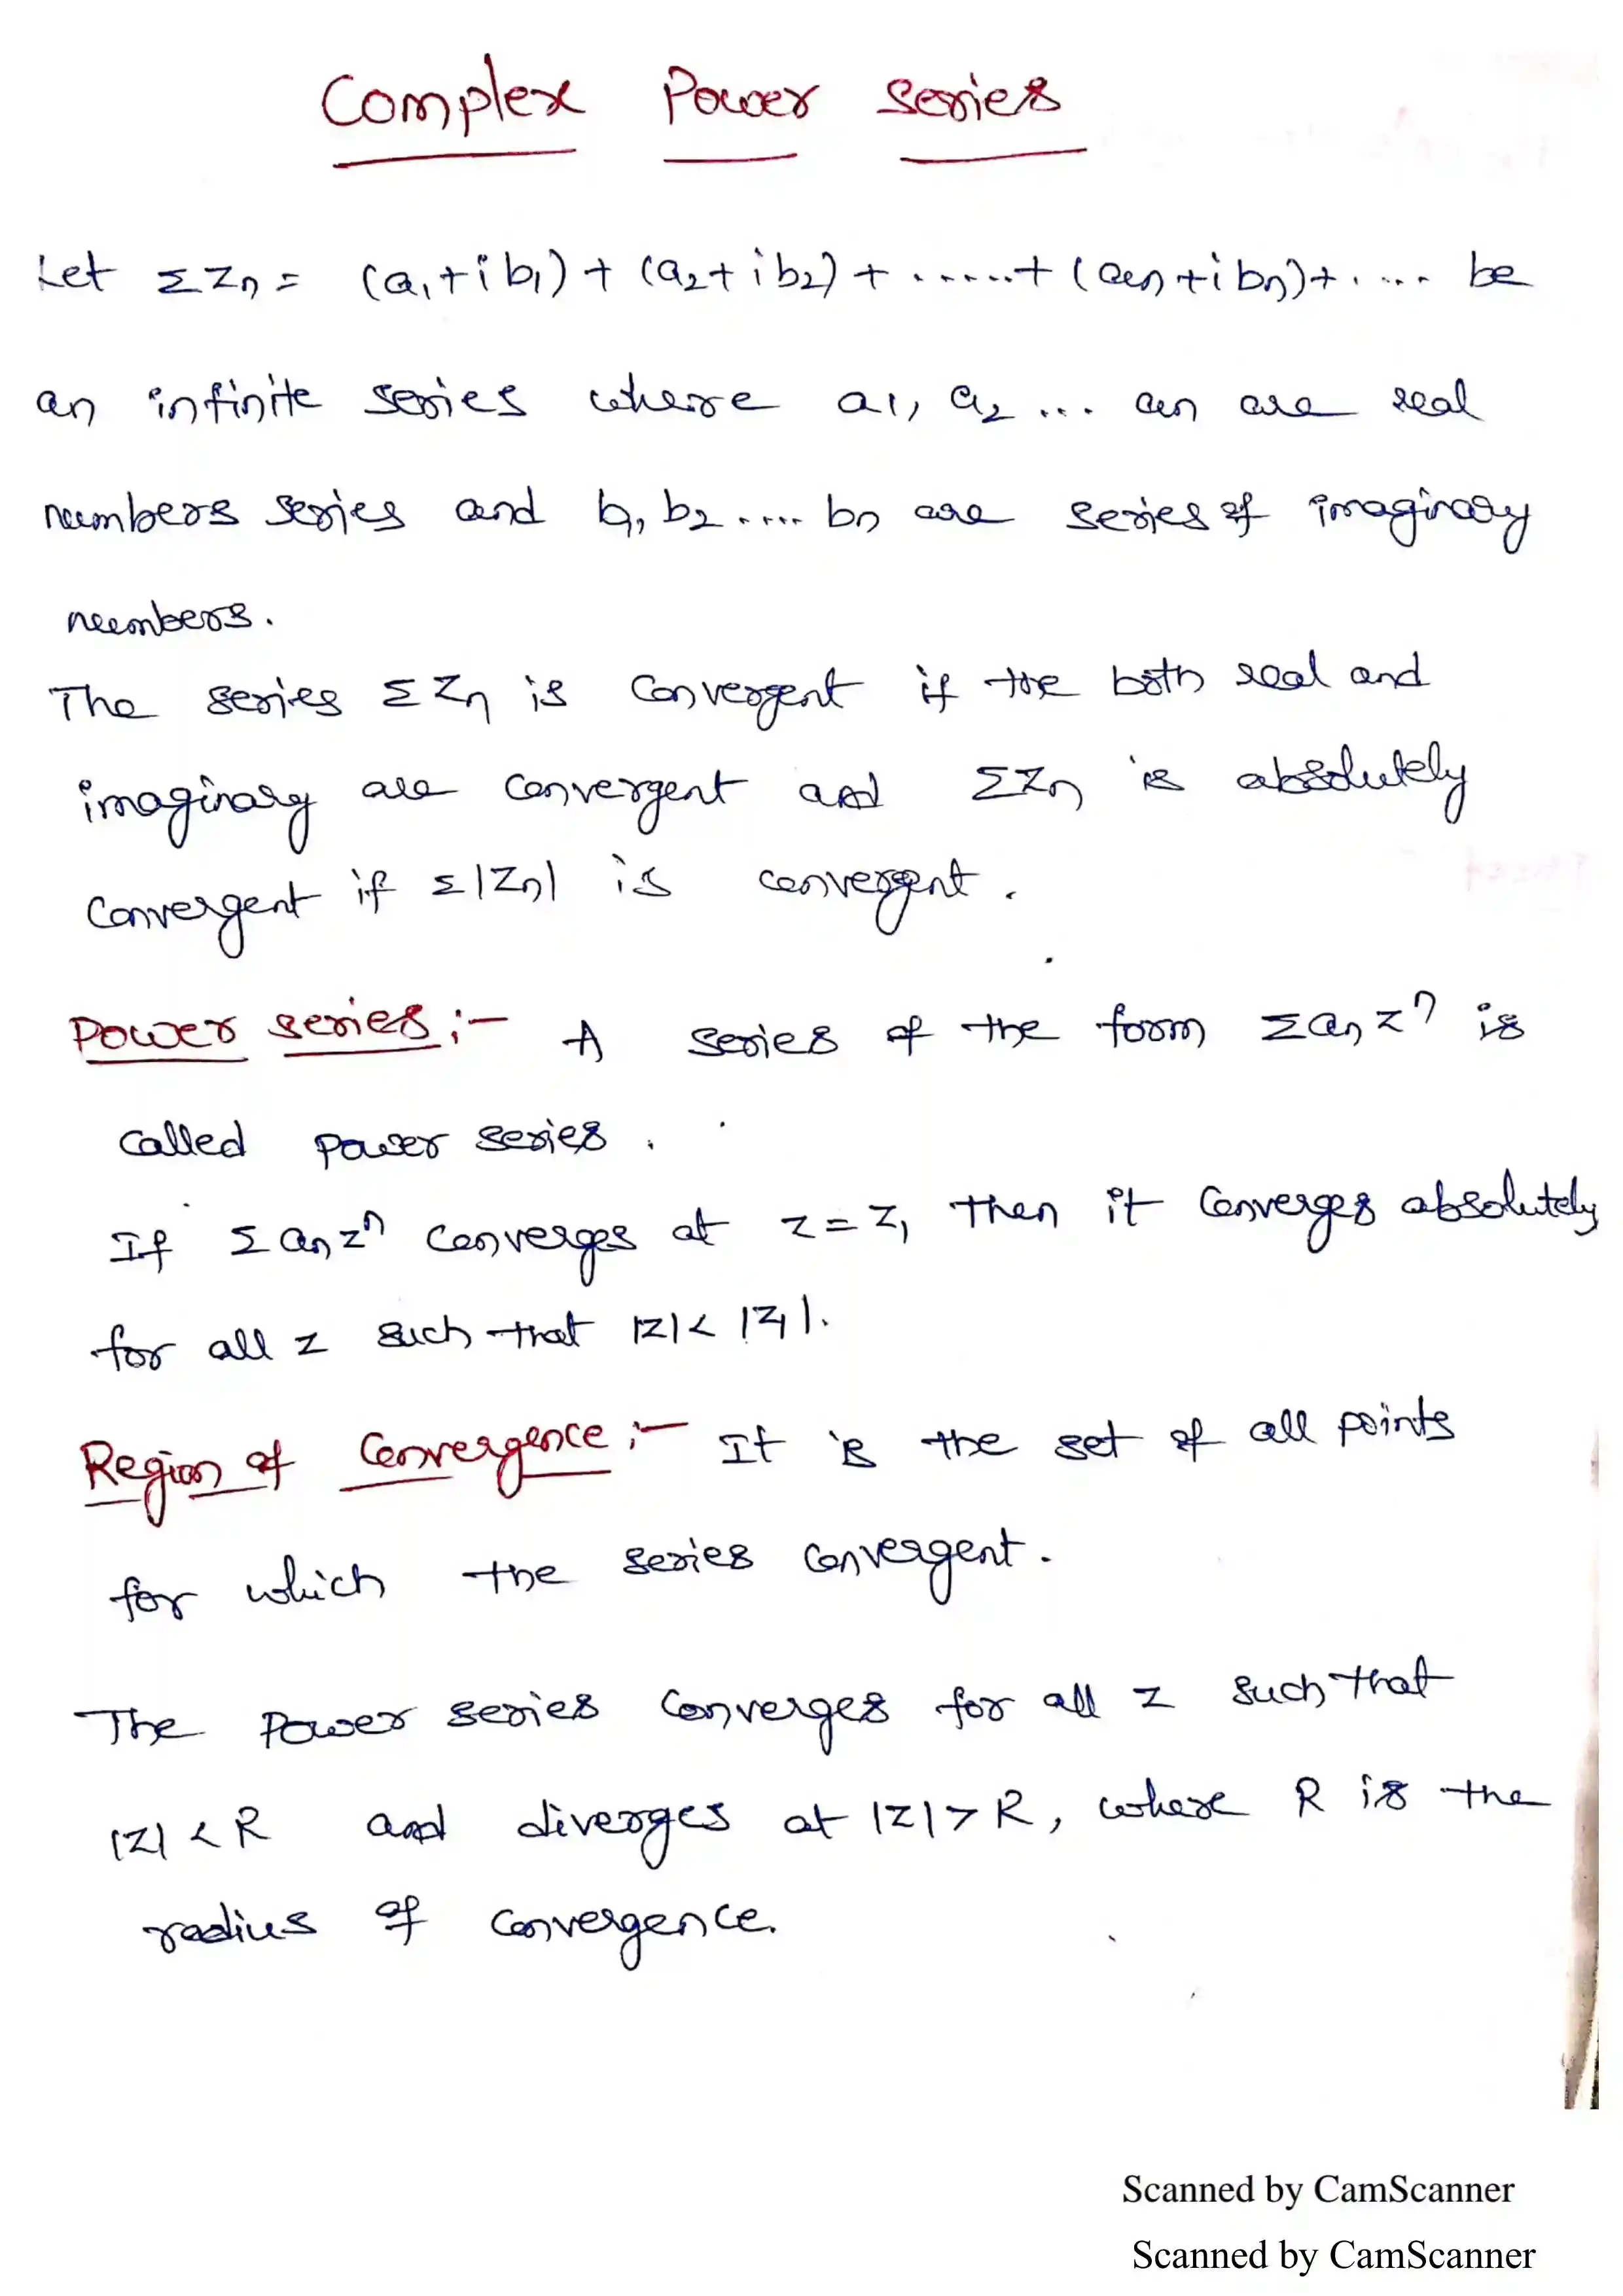 Complex Power series
Let Σ Zn = (a1+ib1) + (a2+ib2) + ......+ (an+ibn)+..... be
an infinite series where a1, a2 ... an are real
numbers series and b1, b2 ..... bn are series of imaginary
numbers.
The series Σ Zn is convergent if the both real and
imaginary are convergent and ΣZn is absolutely
convergent if Σ|Zn| is convergent.
Power series :- A series of the form Σ an z^n is
called power series.
If Σ an z^n converges at z = z1 then it converges absolutely
for all z such that |z| < |z1|.
Region of Convergence :- It is the set of all points
for which the series convergent.
The Power series converges for all z such that
|z| < R and diverges at |z| > R, where R is the
radius of convergence.
Scanned by CamScanner
Scanned by CamScanner